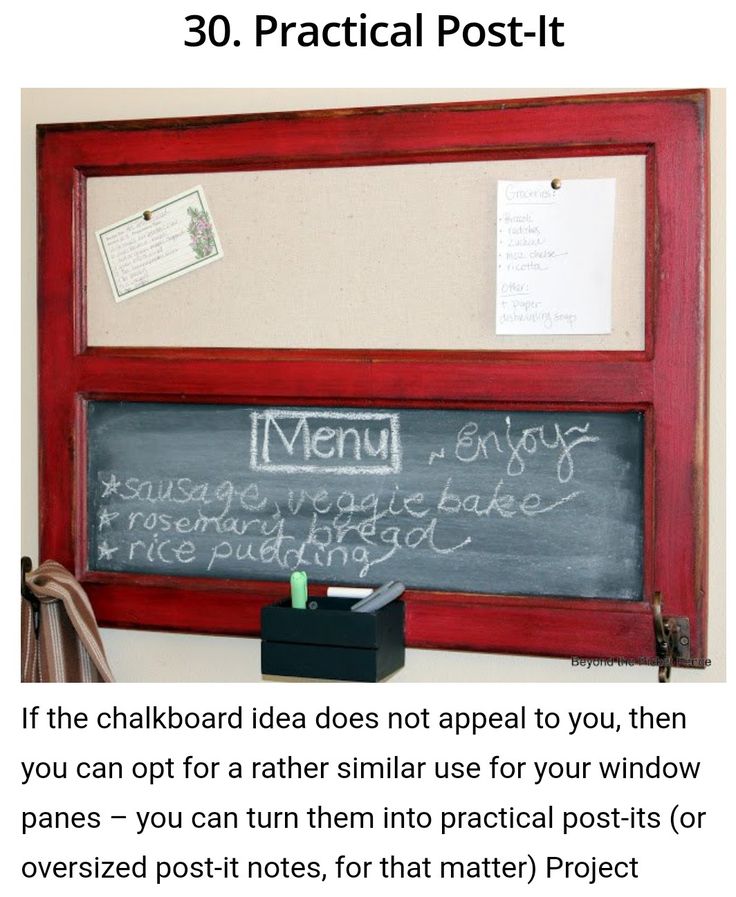 30. Practical Post-It
Groceries:
Broccoli
radishes
zucchini
moz cheese
ricotta
Other:
Paper
dishwashing soap
Menu ~Enjoy~
*sausage, veggie bake
*rosemary bread
*rice pudding
Beyond the Picket Fence
If the chalkboard idea does not appeal to you, then
you can opt for a rather similar use for your window
panes – you can turn them into practical post-its (or
oversized post-it notes, for that matter) Project